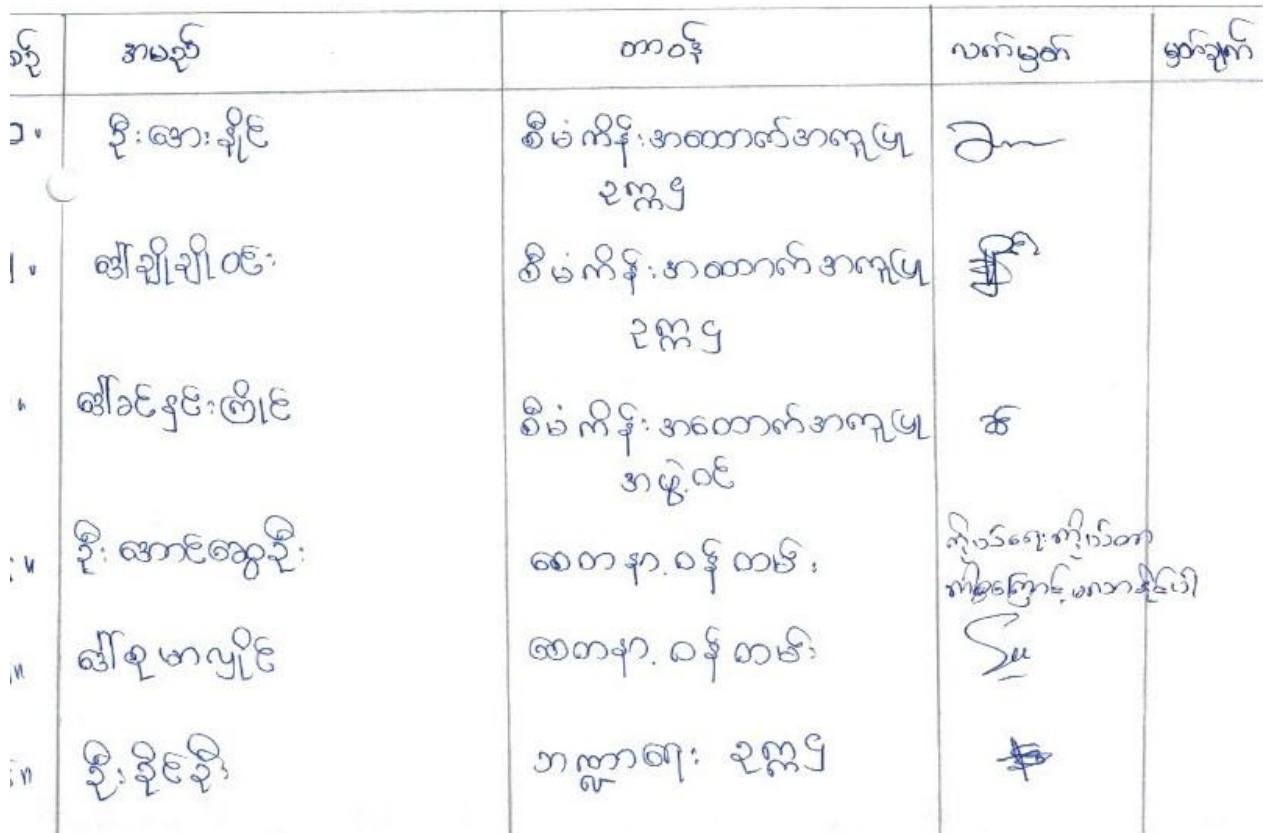 စဉ် အမည် တာဝန် လက်မှတ် မှတ်ချက်
၁။ ဦးအေးနိုင် စီမံကိန်းအထောက်အကူပြု
ဥက္ကဌ
ဒေါ်ချိုချိုဝင်း စီမံကိန်းအထောက်အကူပြု
ဥက္ကဌ
ဒေါ်ခင်နှင်းကြိုင် စီမံကိန်းအထောက်အကူပြု
အဖွဲ့ဝင်
ဦးအောင်ဆွေဦး စေတနာ့ဝန်ထမ်း ကိုယ်ရေးကိုယ်တာ
ကိစ္စကြောင့်မလာနိုင်ပါ
ဒေါ်စုမာလှိုင် စေတနာ့ဝန်ထမ်း Su
ဦးခိုင်ဦး ဘဏ္ဍာရေးဥက္ကဌ